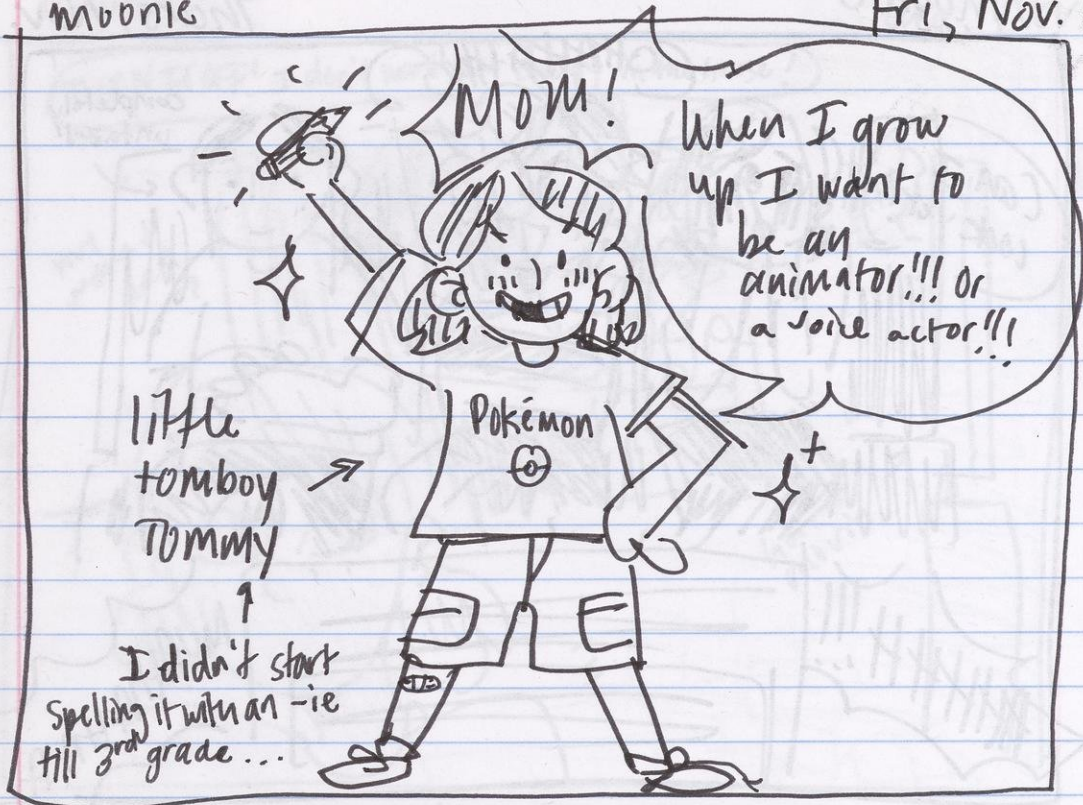 Moonie
Fri, Nov.
MOM!
When I grow
up I want to
be an
animator!!! Or
a voice actor!!!
Pokémon
little
tomboy
Tommy
I didn't start
spelling it with an -ie
till 3rd grade...